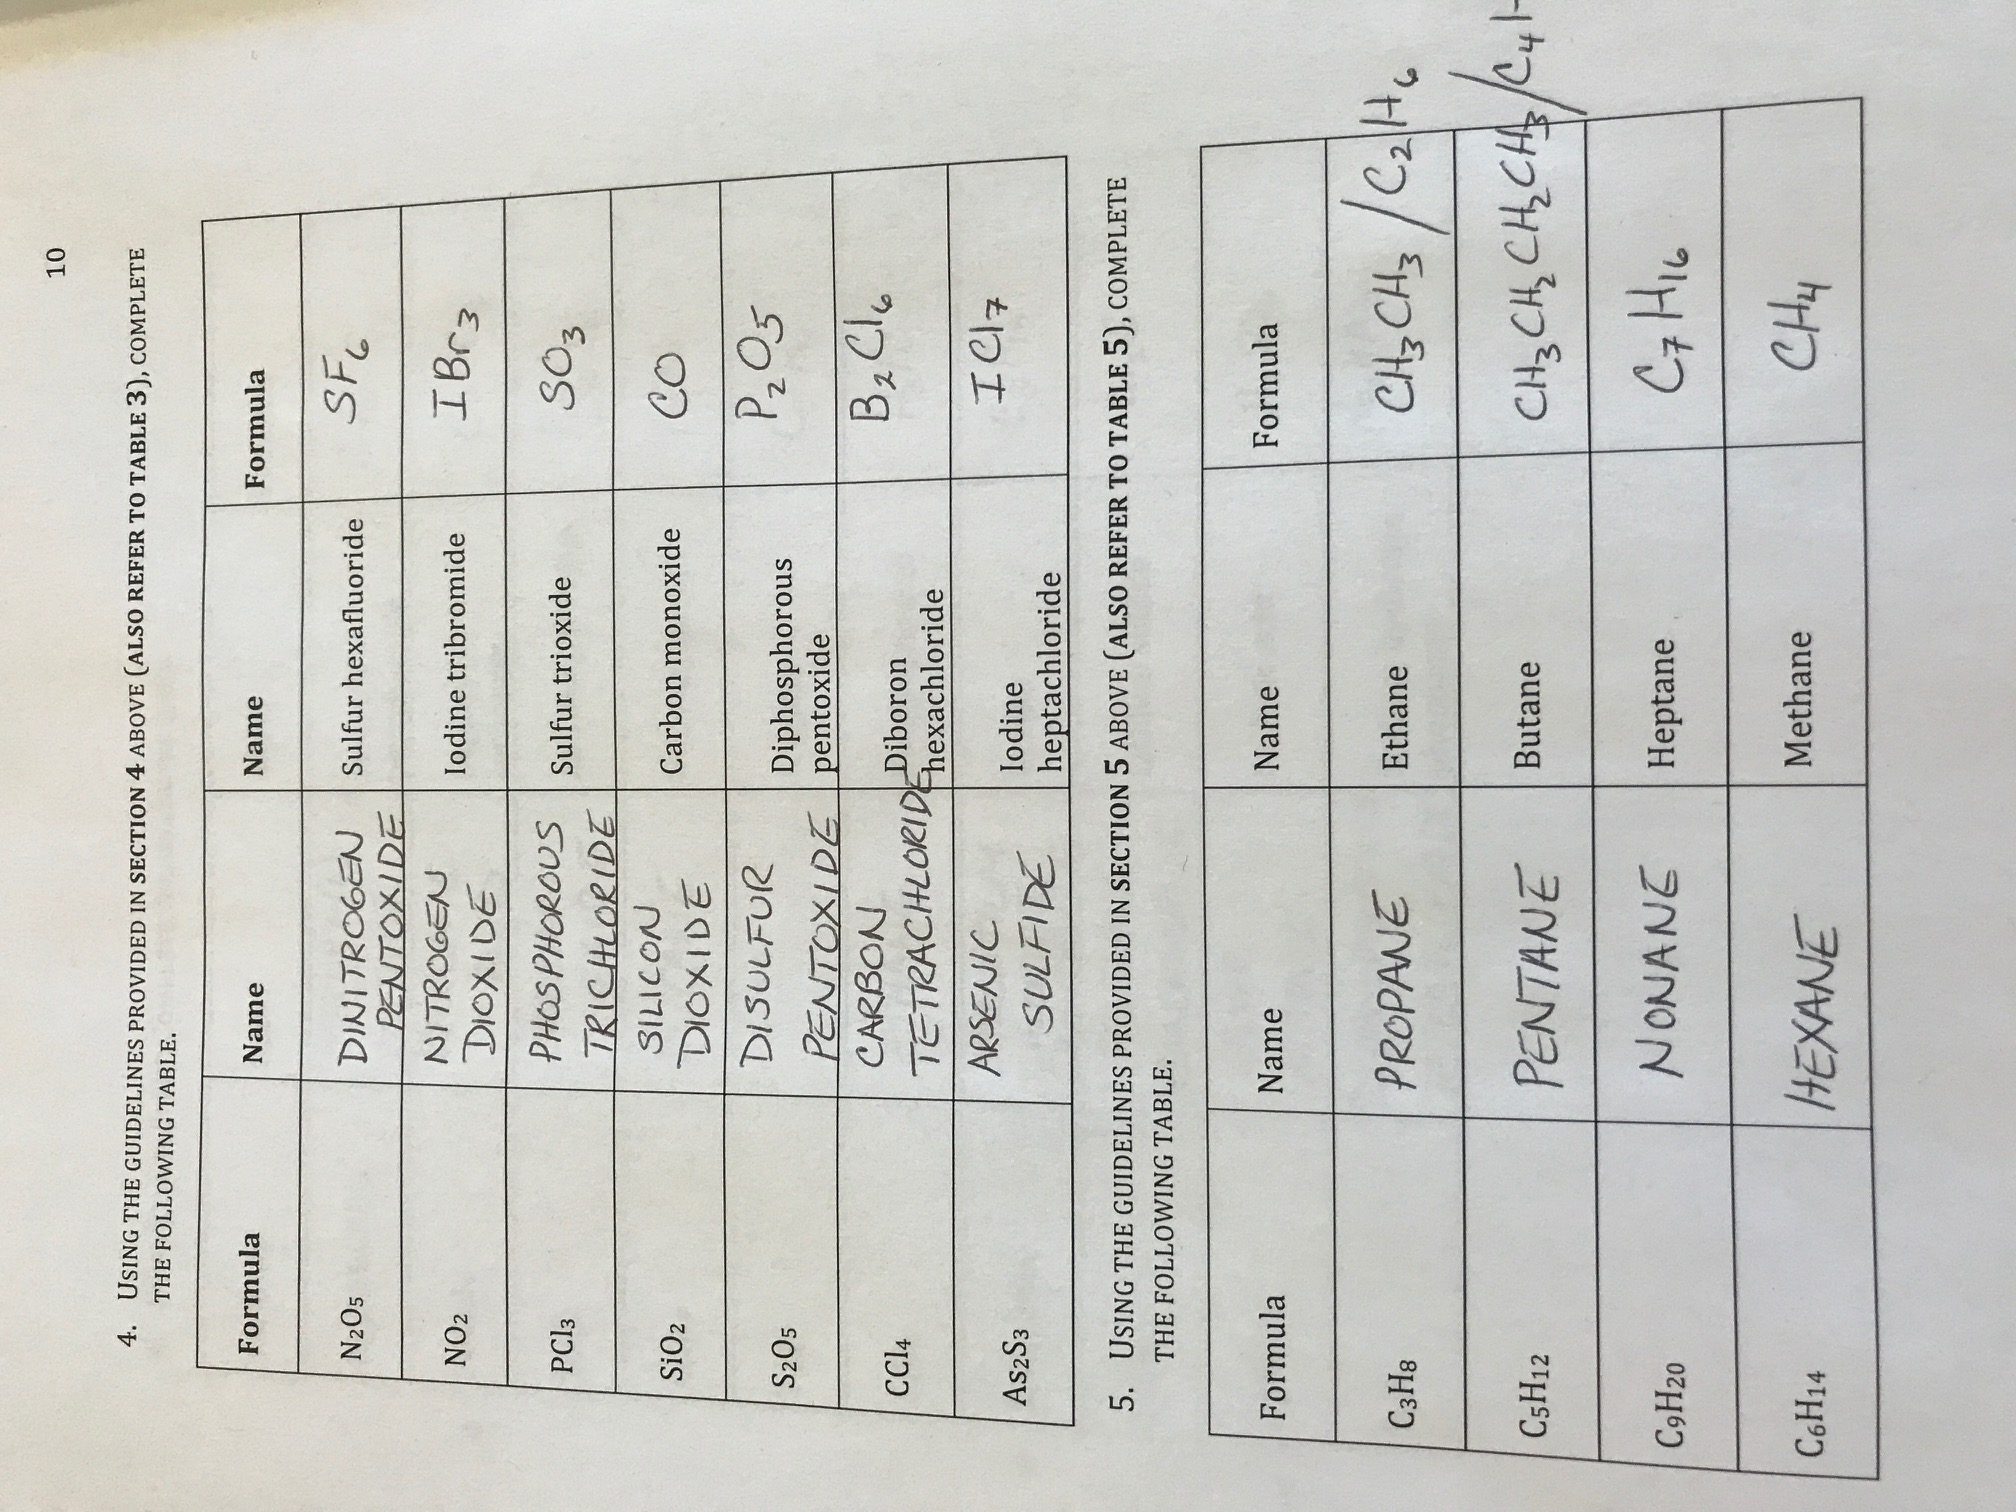 10
4. USING THE GUIDELINES PROVIDED IN SECTION 4 ABOVE (ALSO REFER TO TABLE 3), COMPLETE
THE FOLLOWING TABLE.
Formula Name Name Formula
N₂O₅ DINITROGEN PENTOXIDE Sulfur hexafluoride SF₆
NO₂ NITROGEN DIOXIDE Iodine tribromide IBr₃
PCl₃ PHOSPHOROUS TRICHLORIDE Sulfur trioxide SO₃
SiO₂ SILICON DIOXIDE Carbon monoxide CO
S₂O₅ DISULFUR PENTOXIDE Diphosphorous pentoxide P₂O₅
CCl₄ CARBON TETRACHLORIDE Diboron hexachloride B₂Cl₆
As₂S₃ ARSENIC SULFIDE Iodine heptachloride ICl₇
5. USING THE GUIDELINES PROVIDED IN SECTION 5 ABOVE (ALSO REFER TO TABLE 5), COMPLETE
THE FOLLOWING TABLE.
Formula Name Name Formula
C₃H₈ PROPANE Ethane CH₃CH₃/C₂H₆
C₅H₁₂ PENTANE Butane CH₃CH₂CH₂CH₃/C₄H
C₉H₂₀ NONANE Heptane C₇H₁₆
C₆H₁₄ HEXANE Methane CH₄